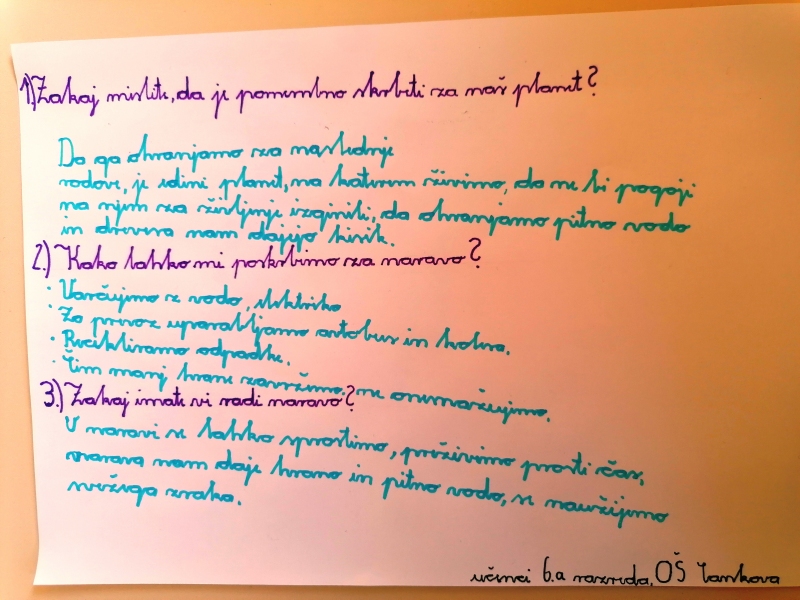 1) Zakaj mislite, da je pomembno skrbeti za naš planet?
Da ga ohranjamo za naslednje
rodove, je edini planet, na katerem živimo, da ne bi pogoji
na njem za življenje izginili, da ohranjamo pitno vodo
in drevesa nam dajejo kisik.
2.) Kako lahko mi poskrbimo za naravo?
• Varčujemo z vodo, elektriko
• Za prevoz uporabljamo avtobus in kolesa.
• Recikliramo odpadke.
• Čim manj hrane zavržemo, ne onesnažujemo.
3.) Zakaj imate vi radi naravo?
V naravi se lahko sprostimo, preživimo prosti čas,
narava nam daje hrano in pitno vodo, se naužijemo
svežega zraka.
učenci 6.a razreda, OŠ Cankova